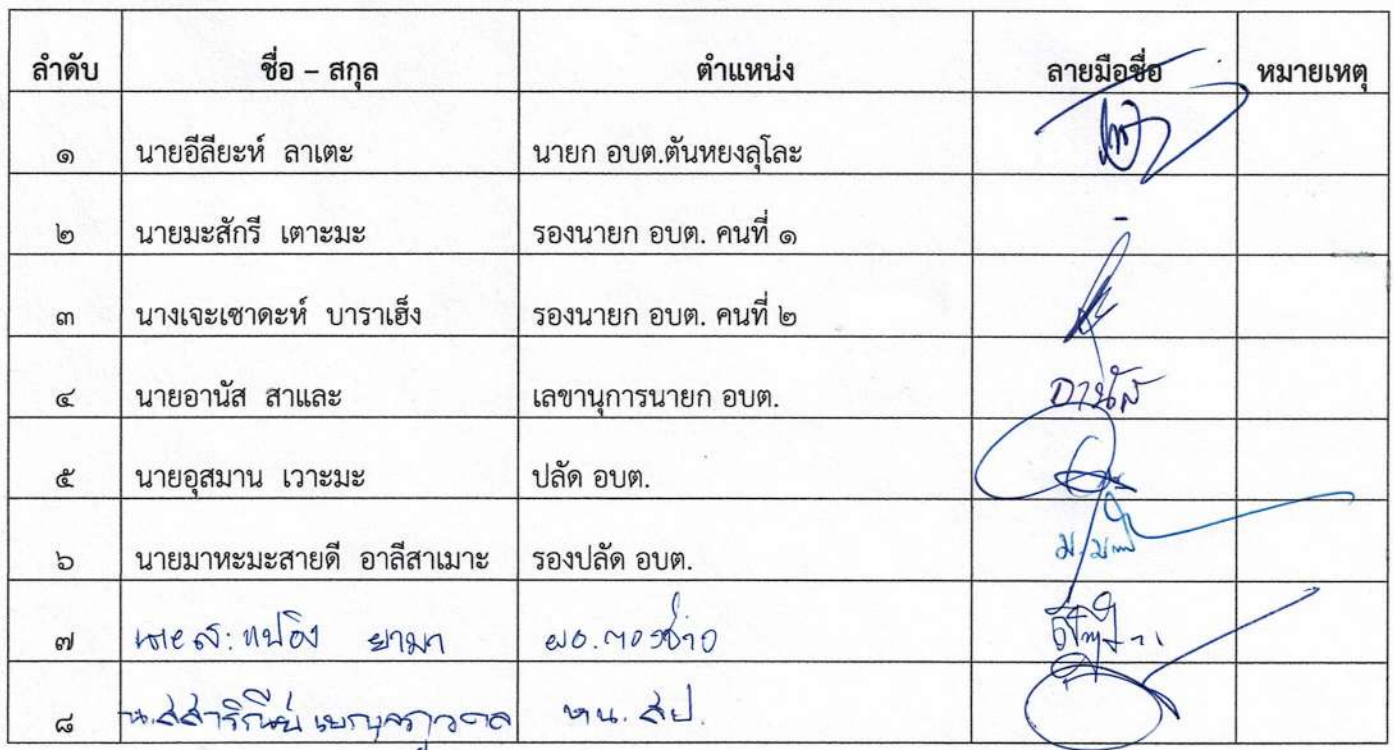 ลำดับ ชื่อ – สกุล ตำแหน่ง ลายมือชื่อ หมายเหตุ
๑ นายอีลียะห์ ลาเตะ นายก อบต.ตันหยงลุโละ
๒ นายมะสักรี เตาะมะ รองนายก อบต. คนที่ ๑ -
๓ นางเจะเซาดะห์ บาราเฮ็ง รองนายก อบต. คนที่ ๒
๔ นายอานัส สาและ เลขานุการนายก อบต. อานัส
๕ นายอุสมาน เวาะมะ ปลัด อบต.
๖ นายมาหะมะสายดี อาลีสาเมาะ รองปลัด อบต.
๗ ยามา ผอ.กองช่าง
๘ หน. สป.